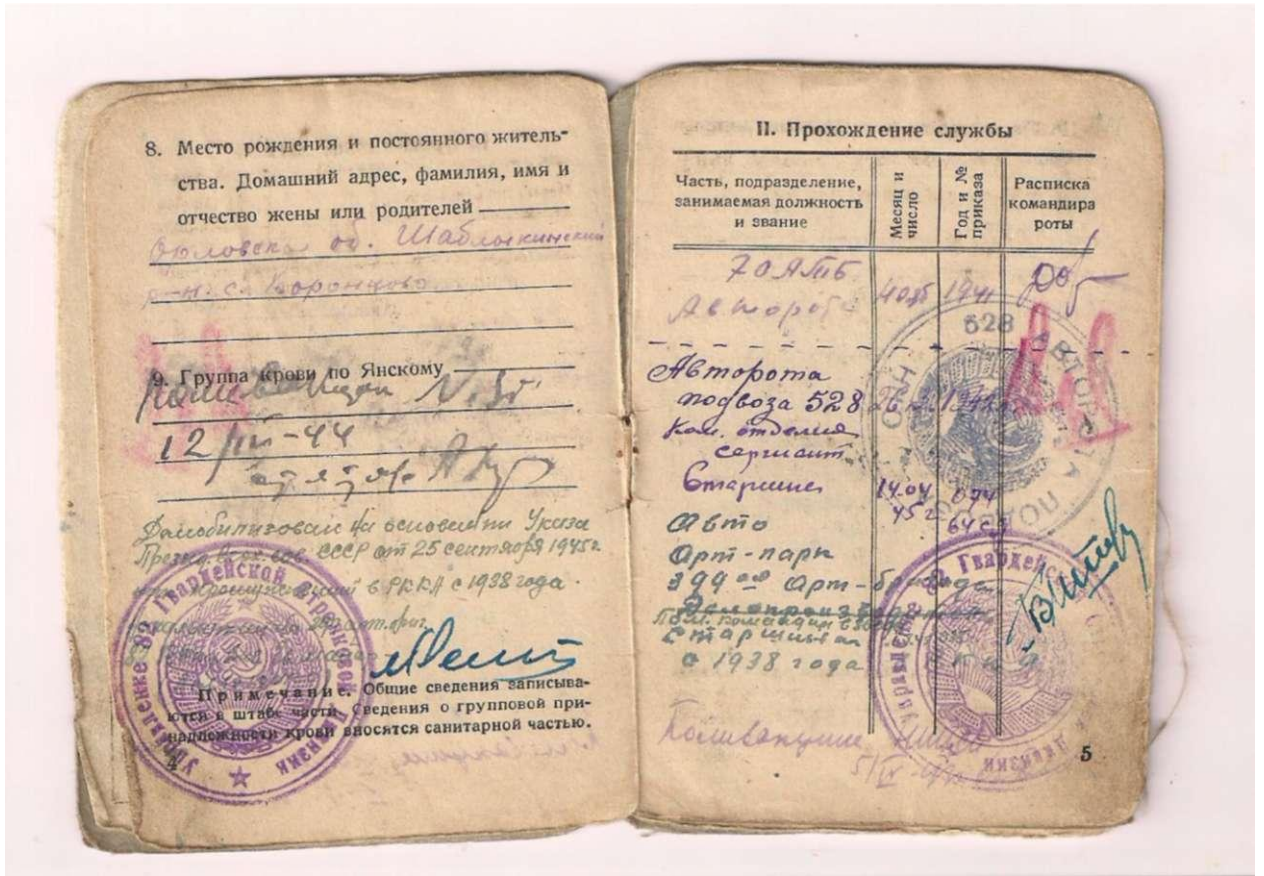 8. Место рождения и постоянного житель-
ства. Домашний адрес, фамилия, имя и
отчество жены или родителей
Орловская об. Шаблыкинский
р-н с. Воронцово
9. Группа крови по Янскому
12/III-44
Демобилизован на основании Указа
През. Верх. Сов. СССР от 25 сентября 1945 г.
в РККА с 1938 года.
Примечание. Общие сведения записыва-
ются в штабе части. Сведения о групповой при-
надлежности крови вносятся санитарной частью.
Управление 82 Гвардейской Стрелковой Дивизии
4
II. Прохождение службы
Часть, подразделение,
занимаемая должность
и звание
Месяц и
число
Год и №
приказа
Расписка
командира
роты
70 АТБ
Авторота
1941
Авторота
подвоза 528
Ком. отделия
сержант
Старшина
14.04
45 г
Авто
Арт-парк
Арт-бригада
Старшина
с 1938 года
528 АВТОРОТА ПОДВОЗА
Управление 82 Гвардейской
Дивизии
5